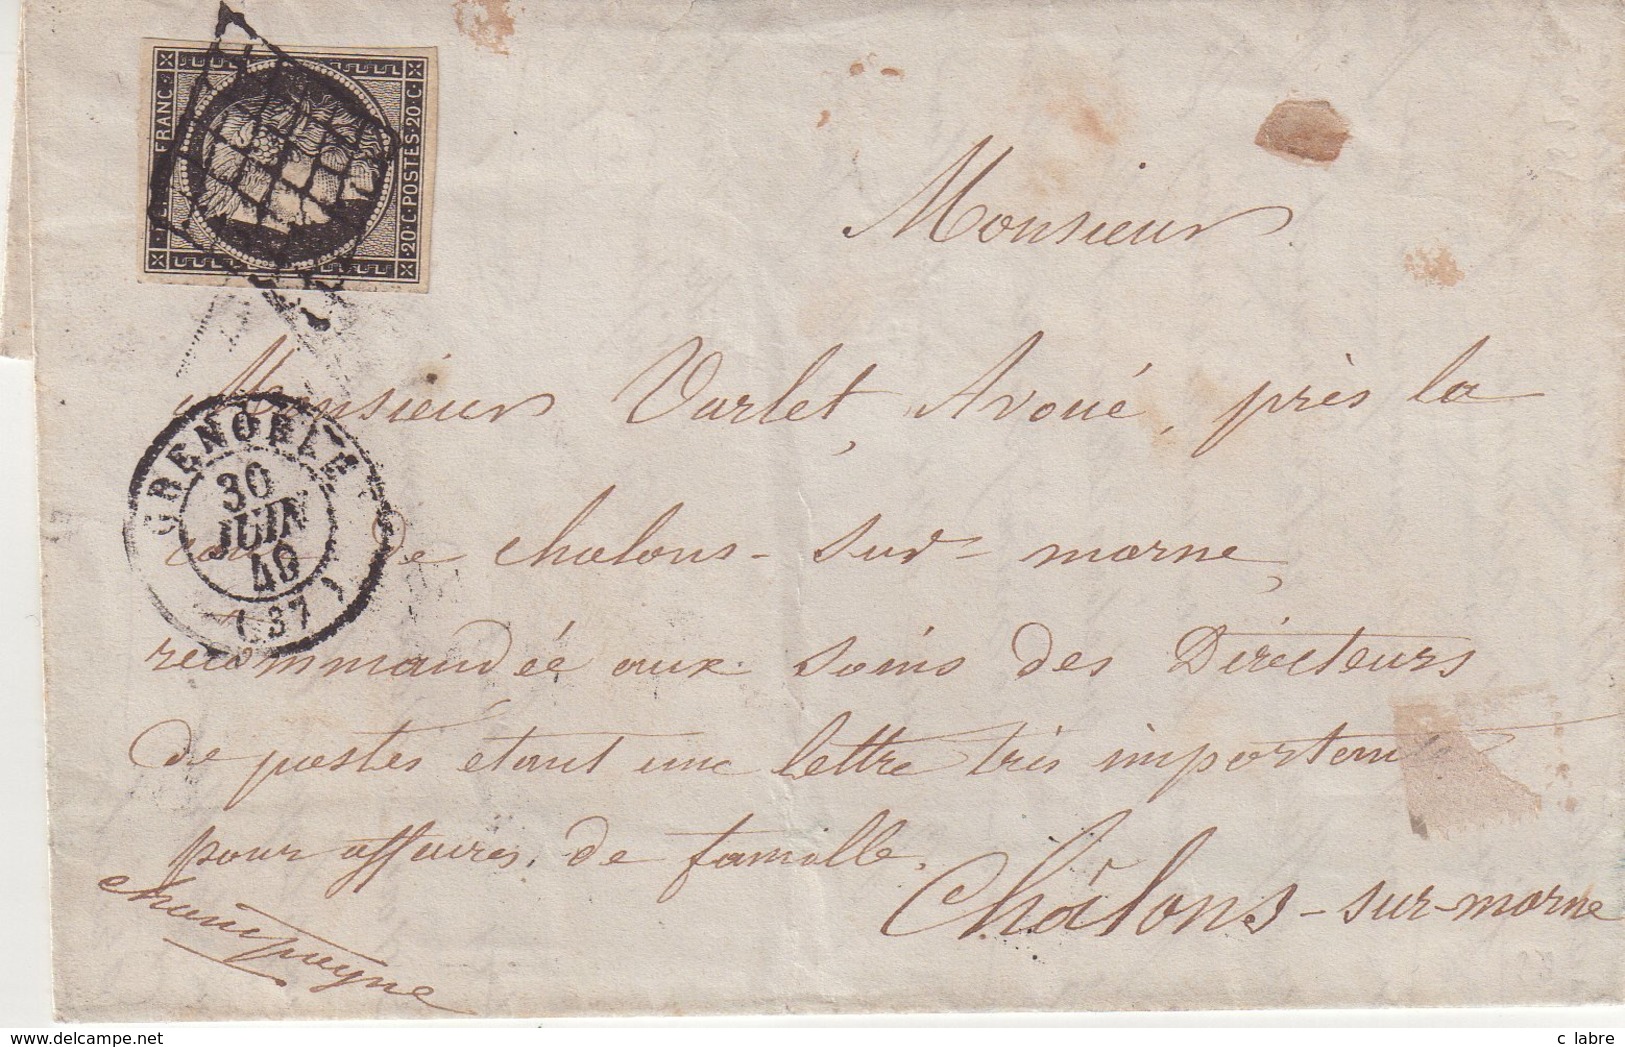 FRANC.
20·C·POSTES·20·C·
Monsieur
Monsieur Varlet, Avoué, près la
GRENOBLE
30
JUIN
49
(37)
cour de chalons-sur-marne,
recommandée aux soins des Directeurs
de postes étant une lettre très important
pour affaires de famille.
Châlons-sur-marne
champagne
www.delcampe.net
c labre